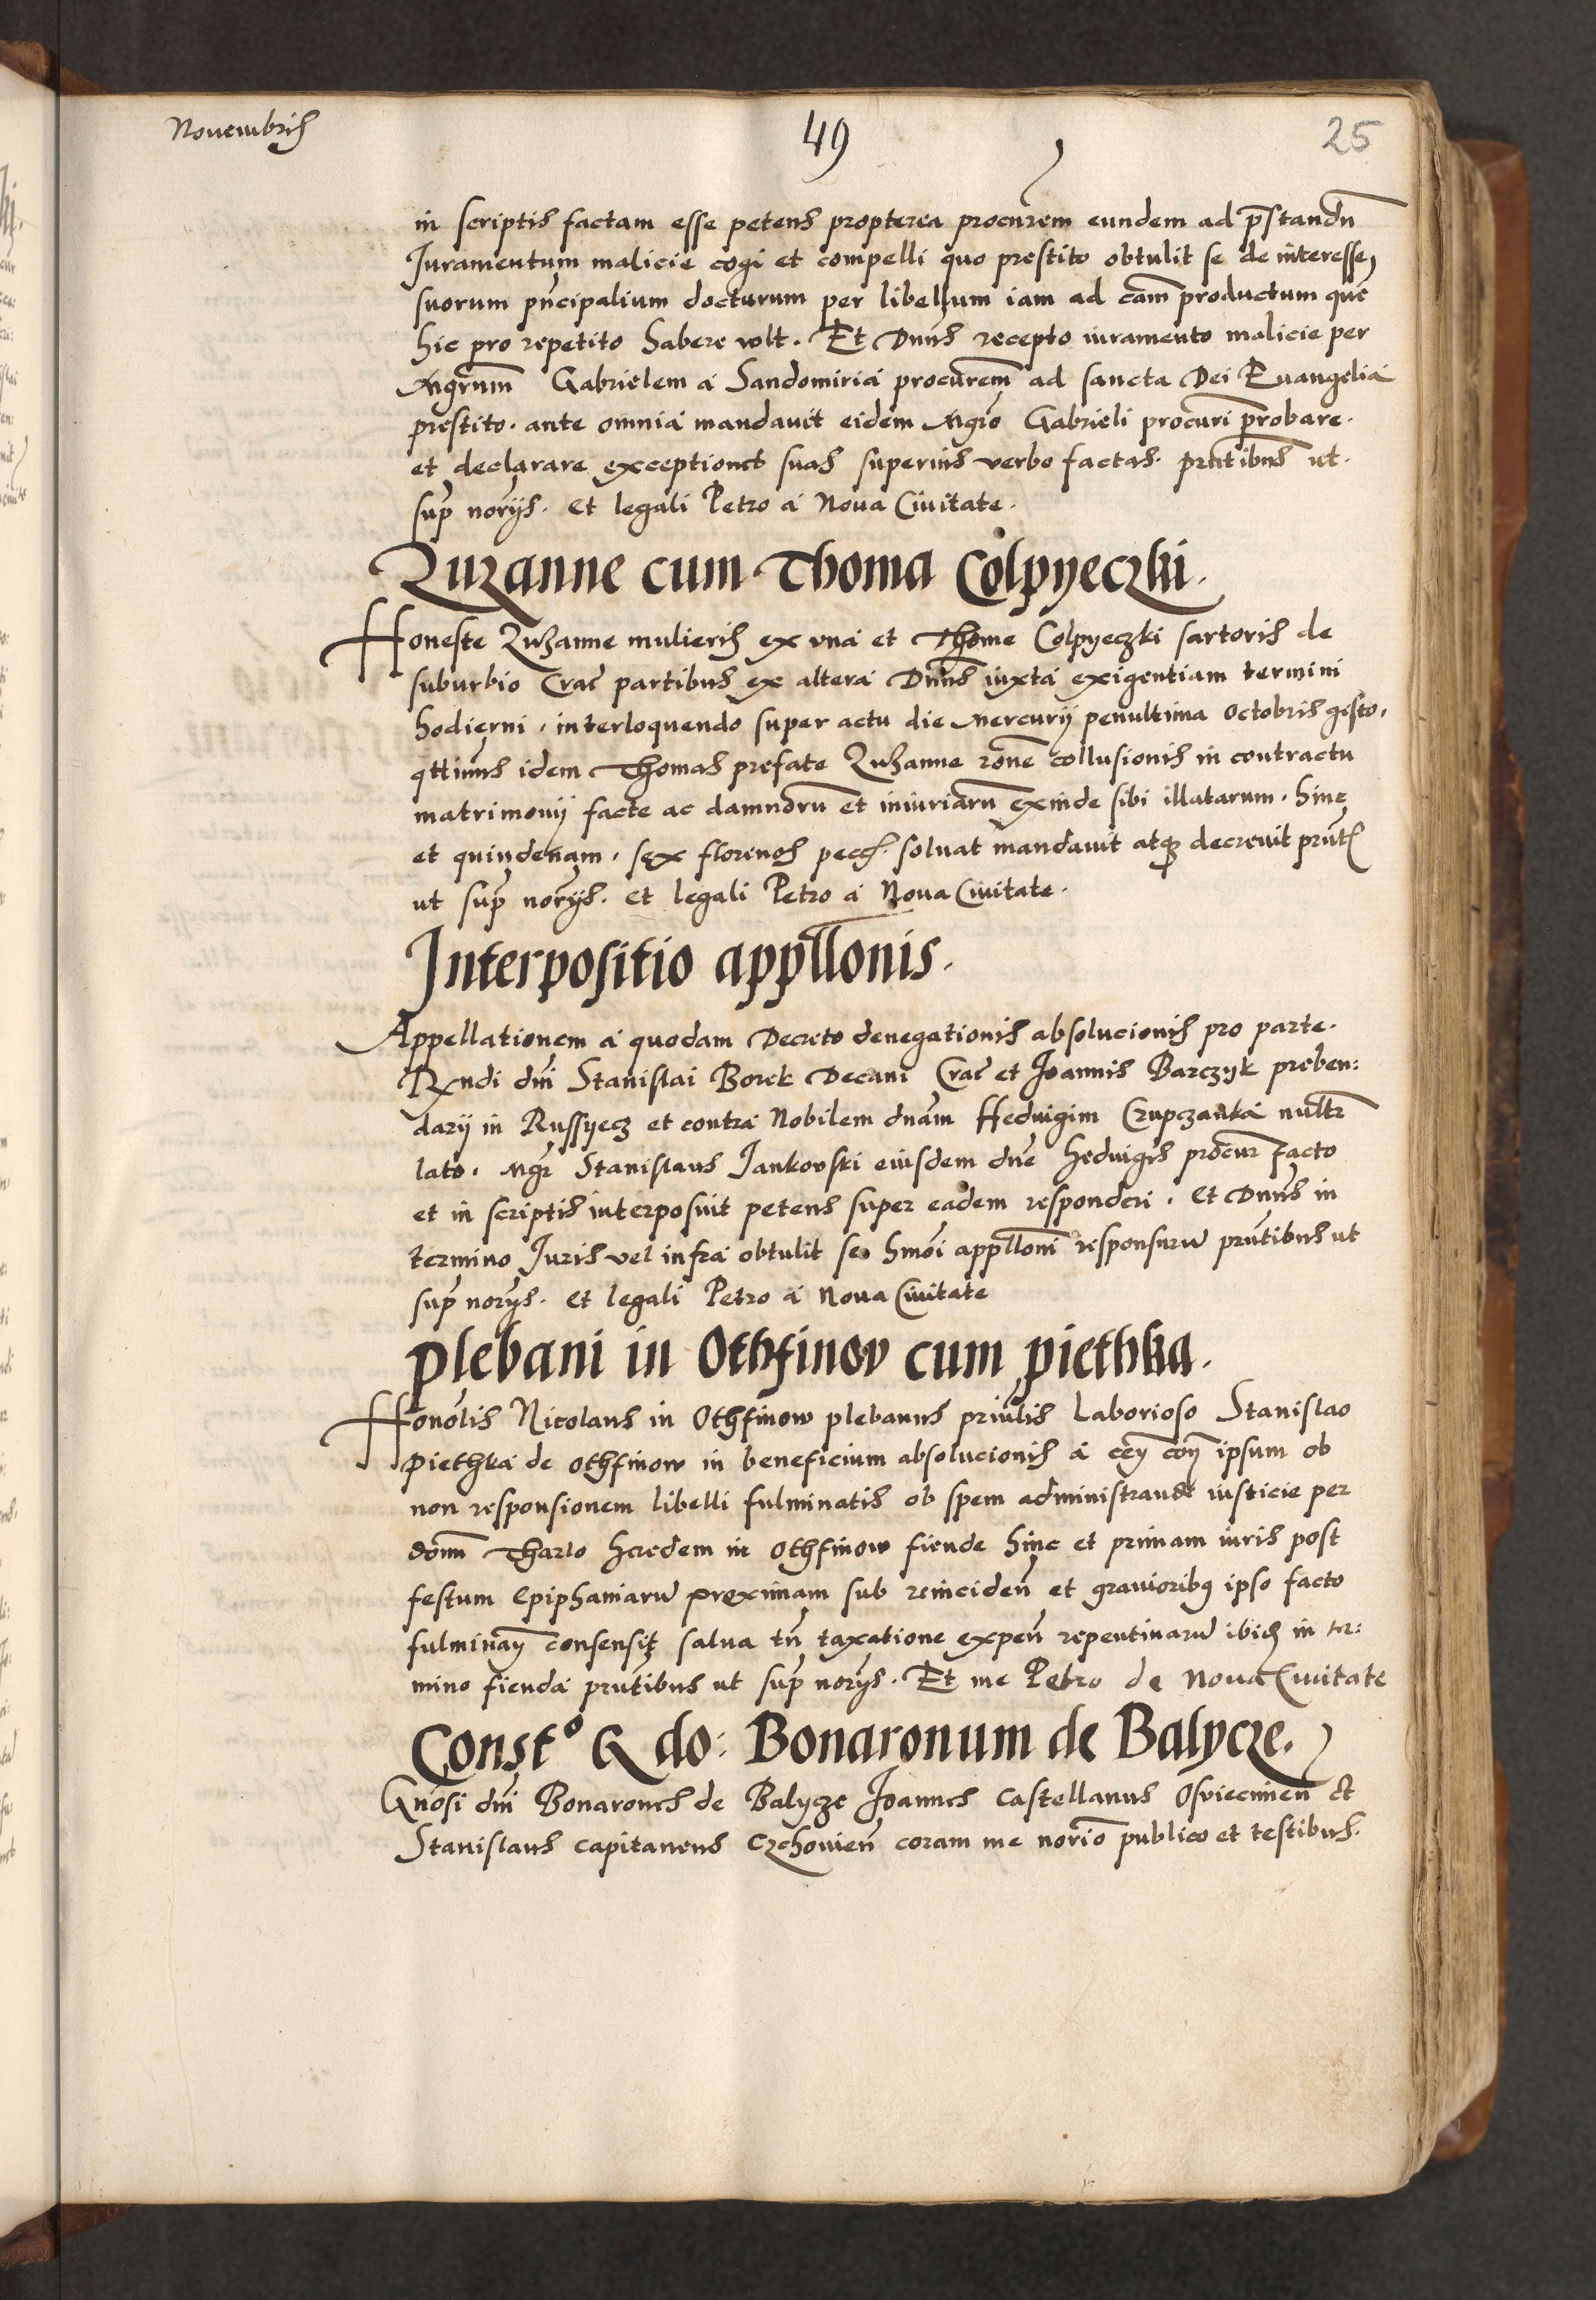 Novembris
49
25
in scriptis factam esse petens propterea procurem eundem ad pstandu
Iuramentum malicie cogi et compelli quo prestito obtulit se de interesse
suorum pncipalium docturum per libellum iam ad cam productum que
hic pro repetito habere volt. Et Dnus recepto iuramento malicie per
Mgrum Gabrielem a Sandomiria procurem ad sancta Dei Evangelia
prestito. ante omnia mandavit eidem Mgro Gabrieli procuri probare.
et declarare exceptiones suas superius verbo factas. pntibus ut.
sup norijs. et legali Petro a Nova Civitate.
Zuzanne cum Thoma Colpyeczki.
Honeste Zuzanne mulieris ex una et Thome Colpyeczki sartoris de
suburbio Crac partibus ex altera Dnus iuxta exigentiam termini
hodierni, interloquendo super actu die Mercurij penultima Octobris gesto,
qttinus idem Thomas prefate Zuzanne rone collusionis in contractu
matrimonij facte ac damnoru et iniuriaru exinde sibi illatarum. hinc
et quindenam. sex florenos pecc. solvat mandavit atq decrevit pnt
ut sup norijs. et legali Petro a Nova Civitate.
Interpositio appllonis.
Appellationem a quodam Decreto denegationis absolucionis pro parte.
Rndi dni Stanislai Borek Decani Crac et Joannis Barczyk preben:
darij in Russyecz et contra Nobilem dnam Hedvigim Crupczanka
lato. Mgr Stanislaus Jankovski eiusdem dne Hedvigis procur facto
et in scriptis interposuit petens super eadem responderi. et Dnus in
termino Juris vel infra obtulit se hmoi applloni responsuru pntibus ut
sup norijs. et legali Petro a Nova Civitate
Plebani in Othfinov cum piethka.
Honolis Nicolaus in Othfinow plebanus priulis Laborioso Stanislao
Piethka de Othfinow in beneficium absolucionis a ipsum ob
non responsionem libelli fulminatis ob spem administrande iusticie per
donm Tharlo heredem in Othfinow fiende hinc et primam iuris post
festum Epiphaniaru proximam sub reinciden et graviorib9 ipso facto
fulminan consensit salva tn taxatione expen repentinaru ibid in ter:
mino fienda pntibus ut sup norijs. Et me Petro de Nova Civitate
Const° G do: Bonaronum de Balycze.
Gnosi dni Bonarones de Balycze Joannes Castellanus Osviecimen et
Stanislaus capitaneus Czchovien coram me norio publico et testibus.